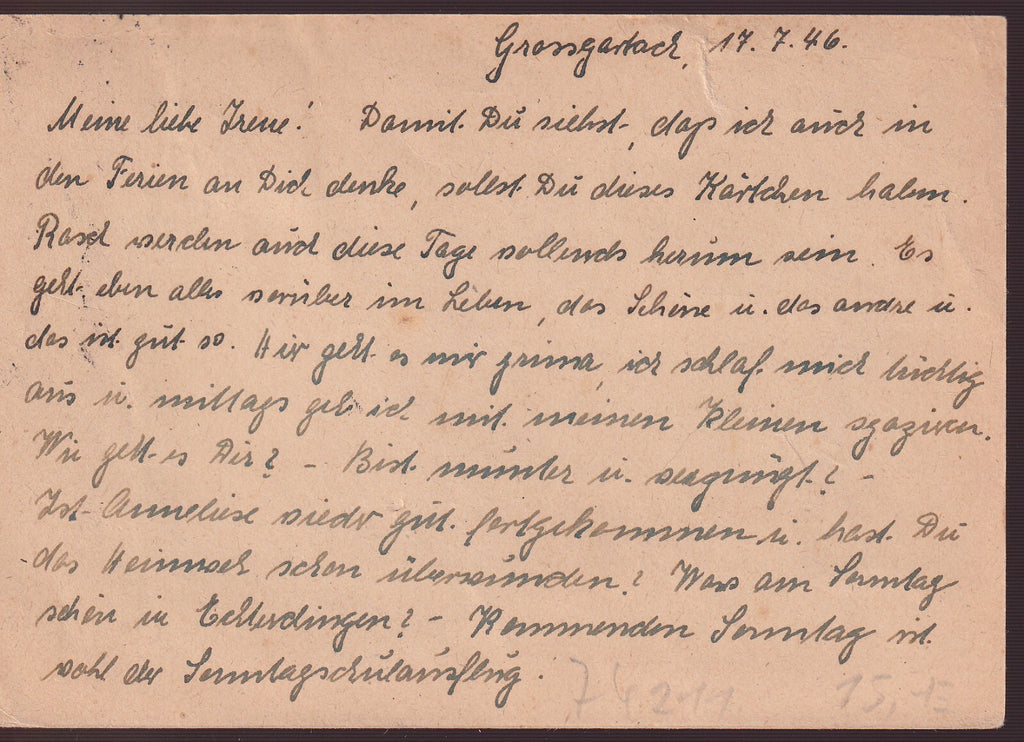 Grossgartach, 17.7.46.
Meine liebe Irene! Damit Du siehst, daß ich auch in
den Ferien an Dich denke, sollst Du dieses Kärtchen haben.
Rasch werden auch diese Tage vollends herum sein. Es
geht eben alles vorüber im Leben, das Schöne u. das andre u.
das ist gut so. Hier geht es mir prima, ich schlaf mich tüchtig
aus u. mittags geh ich mit meinen Kleinen spazieren.
Wie geht es Dir? – Bist munter u. vergnügt? –
Ist Anneliese wieder gut fortgekommen u. hast Du
das Heimweh schon überwunden? Wars am Sonntag
schön in Echterdingen? – Kommenden Sonntag ist
wohl der Sonntagschulausflug.